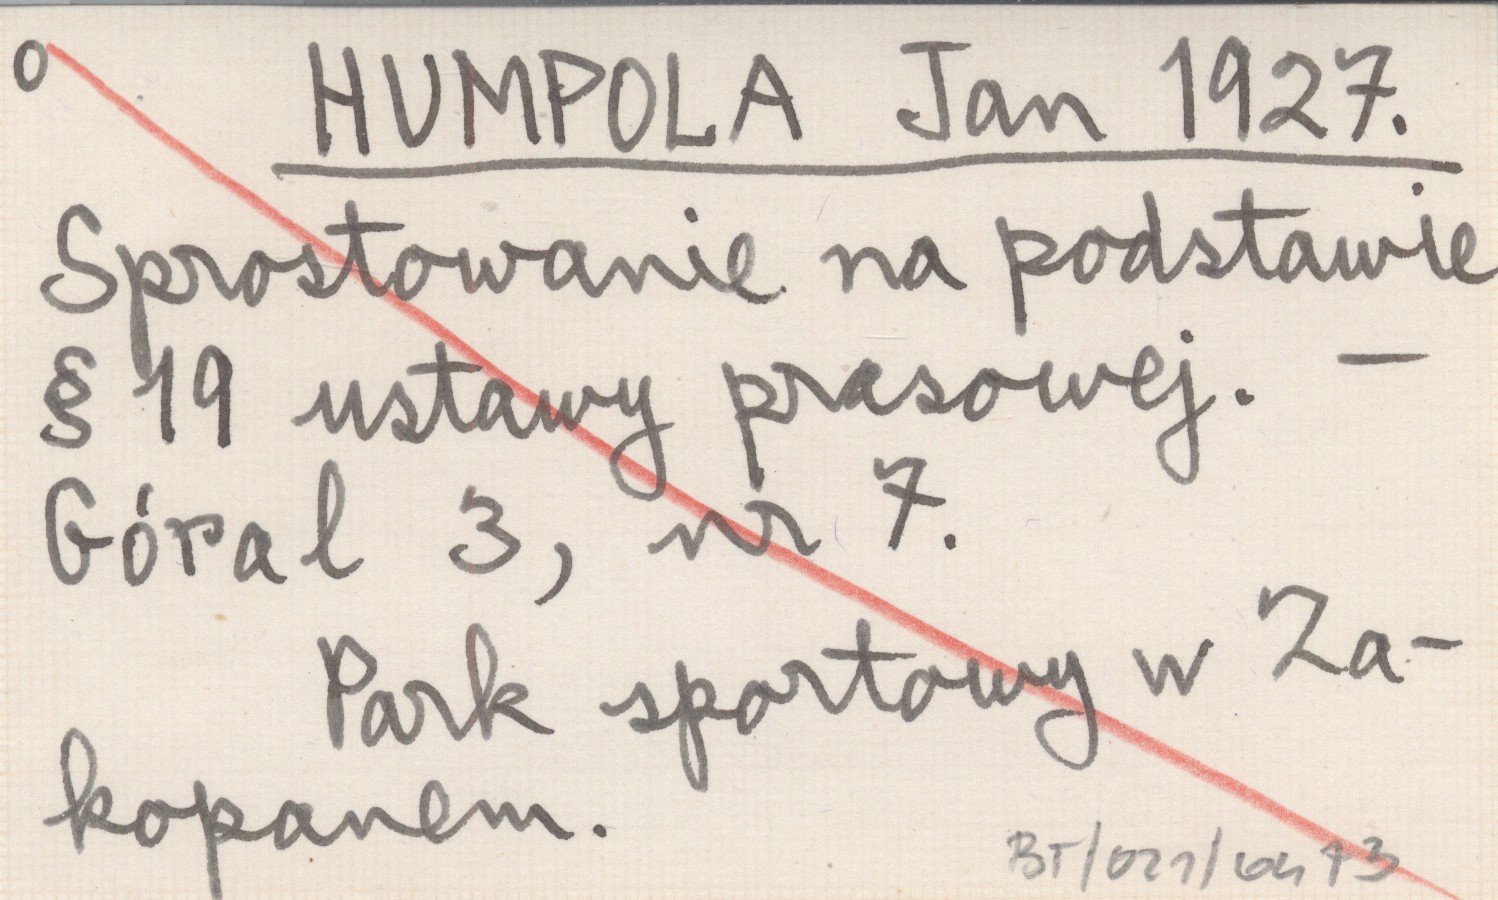 o HUMPOLA Jan 1927.
Sprostowanie na podstawie
§ 19 ustawy prasowej. —
Góral 3, nr 7.
Park sportowy w Za-
kopanem.
BT/021/